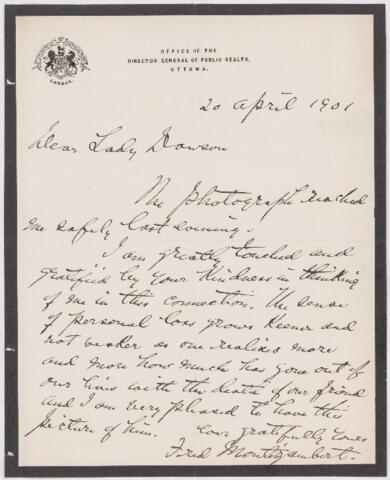 CANADA.
OFFICE OF THE
DIRECTOR GENERAL OF PUBLIC HEALTH,
OTTAWA.
20 April 1901
Dear Lady Dawson
The photograph reached
me safely last evening.
I am greatly touched and
gratified by your kindness in thinking
of me in this connection. The sense
of personal loss grows keener and
not weaker as one realises more
and more how much has gone out of
our lives with the death of our friend
and I am very pleased to have this
picture of him.
Your gratefully yours
Fred Montizambert.